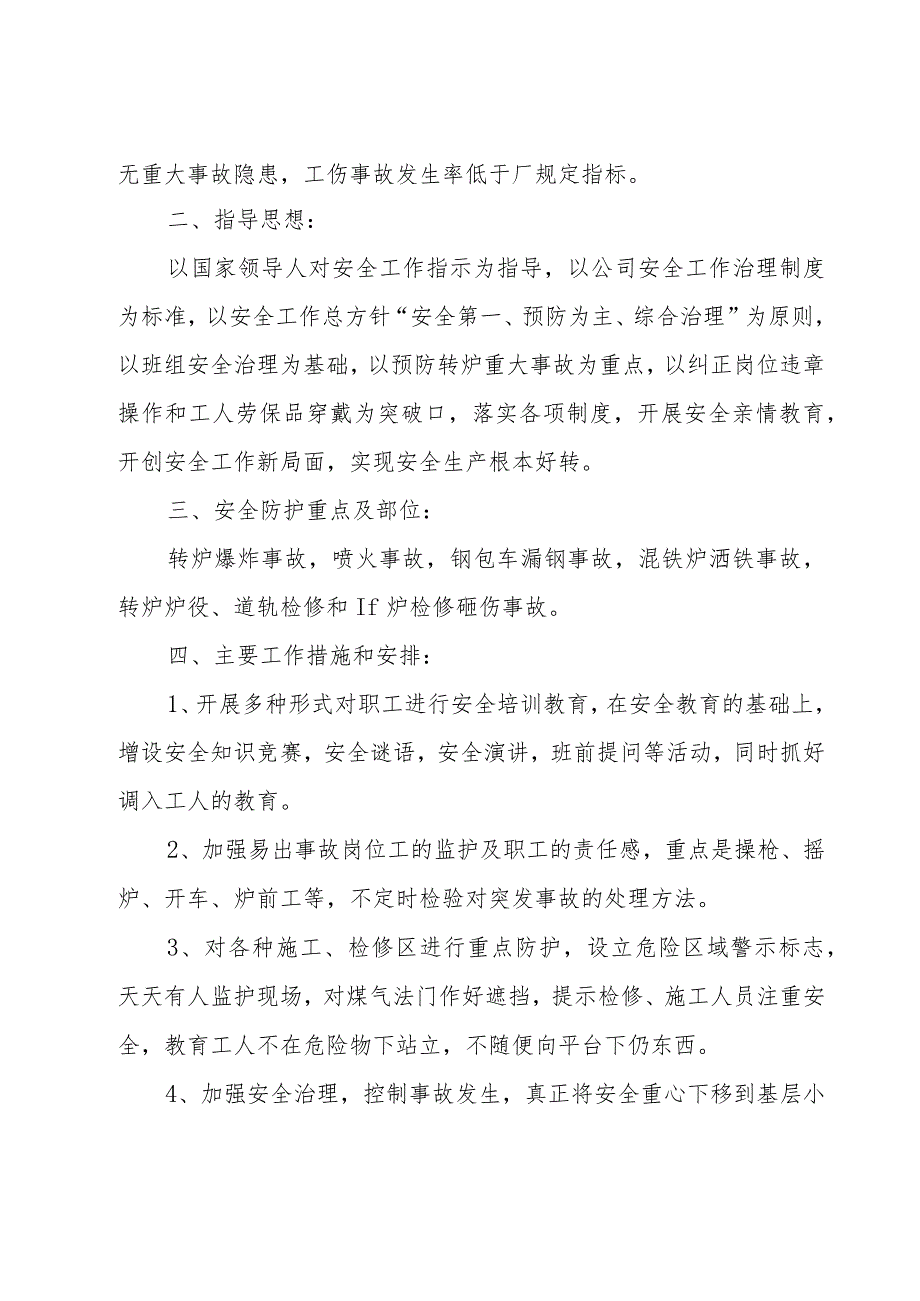 无重大事故隐患，工伤事故发生率低于厂规定指标。
二、指导思想：
以国家领导人对安全工作指示为指导，以公司安全工作治理制度
为标准，以安全工作总方针“安全第一、预防为主、综合治理”为原则，
以班组安全治理为基础，以预防转炉重大事故为重点，以纠正岗位违章
操作和工人劳保品穿戴为突破口，落实各项制度，开展安全亲情教育，
开创安全工作新局面，实现安全生产根本好转。
三、安全防护重点及部位：
转炉爆炸事故，喷火事故，钢包车漏钢事故，混铁炉洒铁事故，
转炉炉役、道轨检修和 If 炉检修砸伤事故。
四、主要工作措施和安排：
1、开展多种形式对职工进行安全培训教育，在安全教育的基础上，
增设安全知识竞赛，安全谜语，安全演讲，班前提问等活动，同时抓好
调入工人的教育。
2、加强易出事故岗位工的监护及职工的责任感，重点是操枪、摇
炉、开车、炉前工等，不定时检验对突发事故的处理方法。
3、对各种施工、检修区进行重点防护，设立危险区域警示标志，
天天有人监护现场，对煤气法门作好遮挡，提示检修、施工人员注重安
全，教育工人不在危险物下站立，不随便向平台下仍东西。
4、加强安全治理，控制事故发生，真正将安全重心下移到基层小